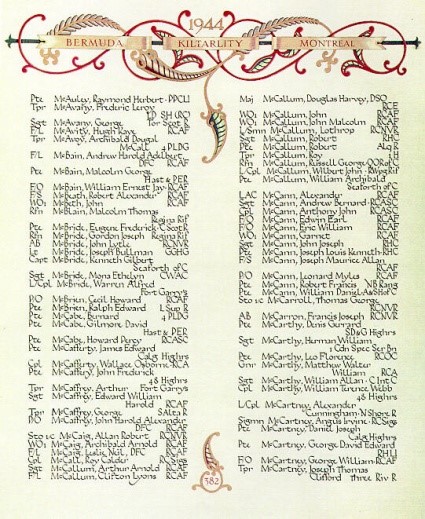 1944
BERMUDA KILTARLITY MONTREAL
Pte McAuley, Raymond Herbert - PPCLI
Tpr McAvany, Frederic Leroy
1 D SH (RC)
Sgt McAvany, George Tor Scot R
F/L McAvity, Hugh Kaye RCAF
Tpr McAvoy, Archibald Dugal
McCall 4 PLDG
F/L McBain, Andrew Harold
DFC RCAF
Pte McBain, Malcolm George
Hast & PER
F/O McBain, William Ernest Jay - RCAF
F/S McBeath, Robert Alexander RCAF
WO1 McBeth, John RCAF
Rfn McBlain, Malcolm Thomas
Regina Rif
Pte McBride, Eugene Frederick - C Scot R
Rfn McBride, Gordon Joseph Regina Rif
AB McBride, John Lytle RCNVR
Lt McBride, Joseph Bullman GGHG
Capt McBride, Kenneth Gilbert
Seaforth of C
Sgt McBride, Mona Ethelyn CWAC
L/Cpl McBride, Warren Alfred
Fort Garry's
P/O McBrien, Cecil Howard RCAF
Pte McBrien, Ralph Edward L Sup R
Pte McCabe, Bernard 4 PLDG
Pte McCabe, Gilmore David
Hast & PER
Pte McCabe, Howard Percy RCASC
Pte McCafferty, James Edward
Calg Highrs
Cpl McCafferty, Wallace Osborne - RCA
Pte McCaffery, John Frederick
48 Highrs
Tpr McCaffrey, Arthur Fort Garry's
Sgt McCaffrey, Edward William
Harold RCAF
Tpr McCaffrey, George S Alta R
P/O McCaffry, John Harold Alexander
DFC RCAF
Sto 1c McCaig, Allan Robert RCNVR
WO1 McCaig, Archibald Arnold RCAF
F/L McCaig, Leslie Neil, DFC RCAF
Cpl McCall, Roy Calder RC Sigs
Sgt McCallum, Arthur Arnold RCAF
F/L McCallum, Clifton Lyons RCAF
Maj McCallum, Douglas Harvey, DSO
RCE
WO1 McCallum, John RCAF
WO2 McCallum, John Malcolm RCAF
L/Smn McCallum, Lothrop RCNVR
Sgt McCallum, Robert RHC
Pte McCallum, Robert Alq R
Tpr McCallum, Roy 1 H
Rfn McCallum, Russell George QOR of C
L/Cpl McCallum, Wilbert John - R Wpg Rif
Pte McCallum, William Archibald
Seaforth of C
LAC McCann, Alexander RCAF
Sgt McCann, Andrew Bernard - RCASC
Cpl McCann, Anthony John RCASC
F/O McCann, Edwin Earl RCAF
F/O McCann, Eric William RCAF
WO2 McCann, Garnet RCAF
Sgt McCann, John Joseph RHC
Pte McCann, Joseph Louis Kenneth - RHC
F/S McCann, Joseph Maurice Allan
RCAF
P/O McCann, Leonard Myles RCAF
Pte McCann, Robert Francis NB Rang
Pte McCann, William Daniel - A&SH of C
Sto 1c McCarroll, Thomas George
RCNVR
AB McCarron, Francis Joseph RCNVR
Pte McCarthy, Denis Gerrard
SD&G Highrs
Sgt McCarthy, Herman William
1 Cdn Spec Ser Bn
Pte McCarthy, Leo Florence RCOC
Gnr McCarthy, Matthew Walter
William RCA
Sgt McCarthy, William Allan - C Int C
Cpl McCarthy, William Terence Webb
48 Highrs
L/Cpl McCartney, Alexander
Cunningham - N Shore R
Sigmn McCartney, Angus Irvine - RC Sigs
Pte McCartney, Daniel Joseph
Calg Highrs
Pte McCartney, George David Edward
RHLI
F/O McCartney, George William - RCAF
Tpr McCartney, Joseph Thomas
Clifford Three Riv R
382